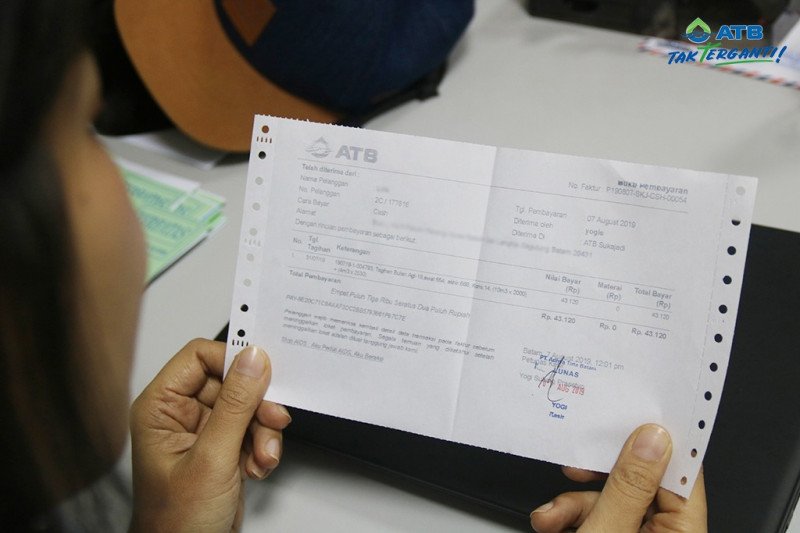 ATB
TAK TERGANTI!
ATB
BUKTI Pembayaran
Telah diterima dari :
No. Faktur : P190807-SKJ-CSH-00054
Nama Pelanggan :
No. Pelanggan : 2C / 177616
Tgl. Pembayaran : 07 August 2019
Cara Bayar : Cash
Diterima oleh : yogie
Alamat :
Diterima Di : ATB Sukajadi
Dengan rincian pembayaran sebagai berikut:
No. Tgl. Tagihan Keterangan Nilai Bayar (Rp) Materai (Rp) Total Bayar (Rp)
43.120 0 43.120
Total Pembayaran Rp. 43.120 Rp. 0 Rp. 43.120
Empat Puluh Tiga Ribu Seratus Dua Puluh Rupiah
Pelanggan wajib memeriksa kembali detail data transaksi pada faktur sebelum
meninggalkan loket pembayaran. Segala temuan yang diketahui setelah
meninggalkan loket adalah diluar tanggung jawab kami.
Stop AIDS : Aku Peduli AIDS, Aku Beraksi
Batam, 7 August 2019, 12:01 pm
LUNAS
AUG 2019
YOGI
Kasir